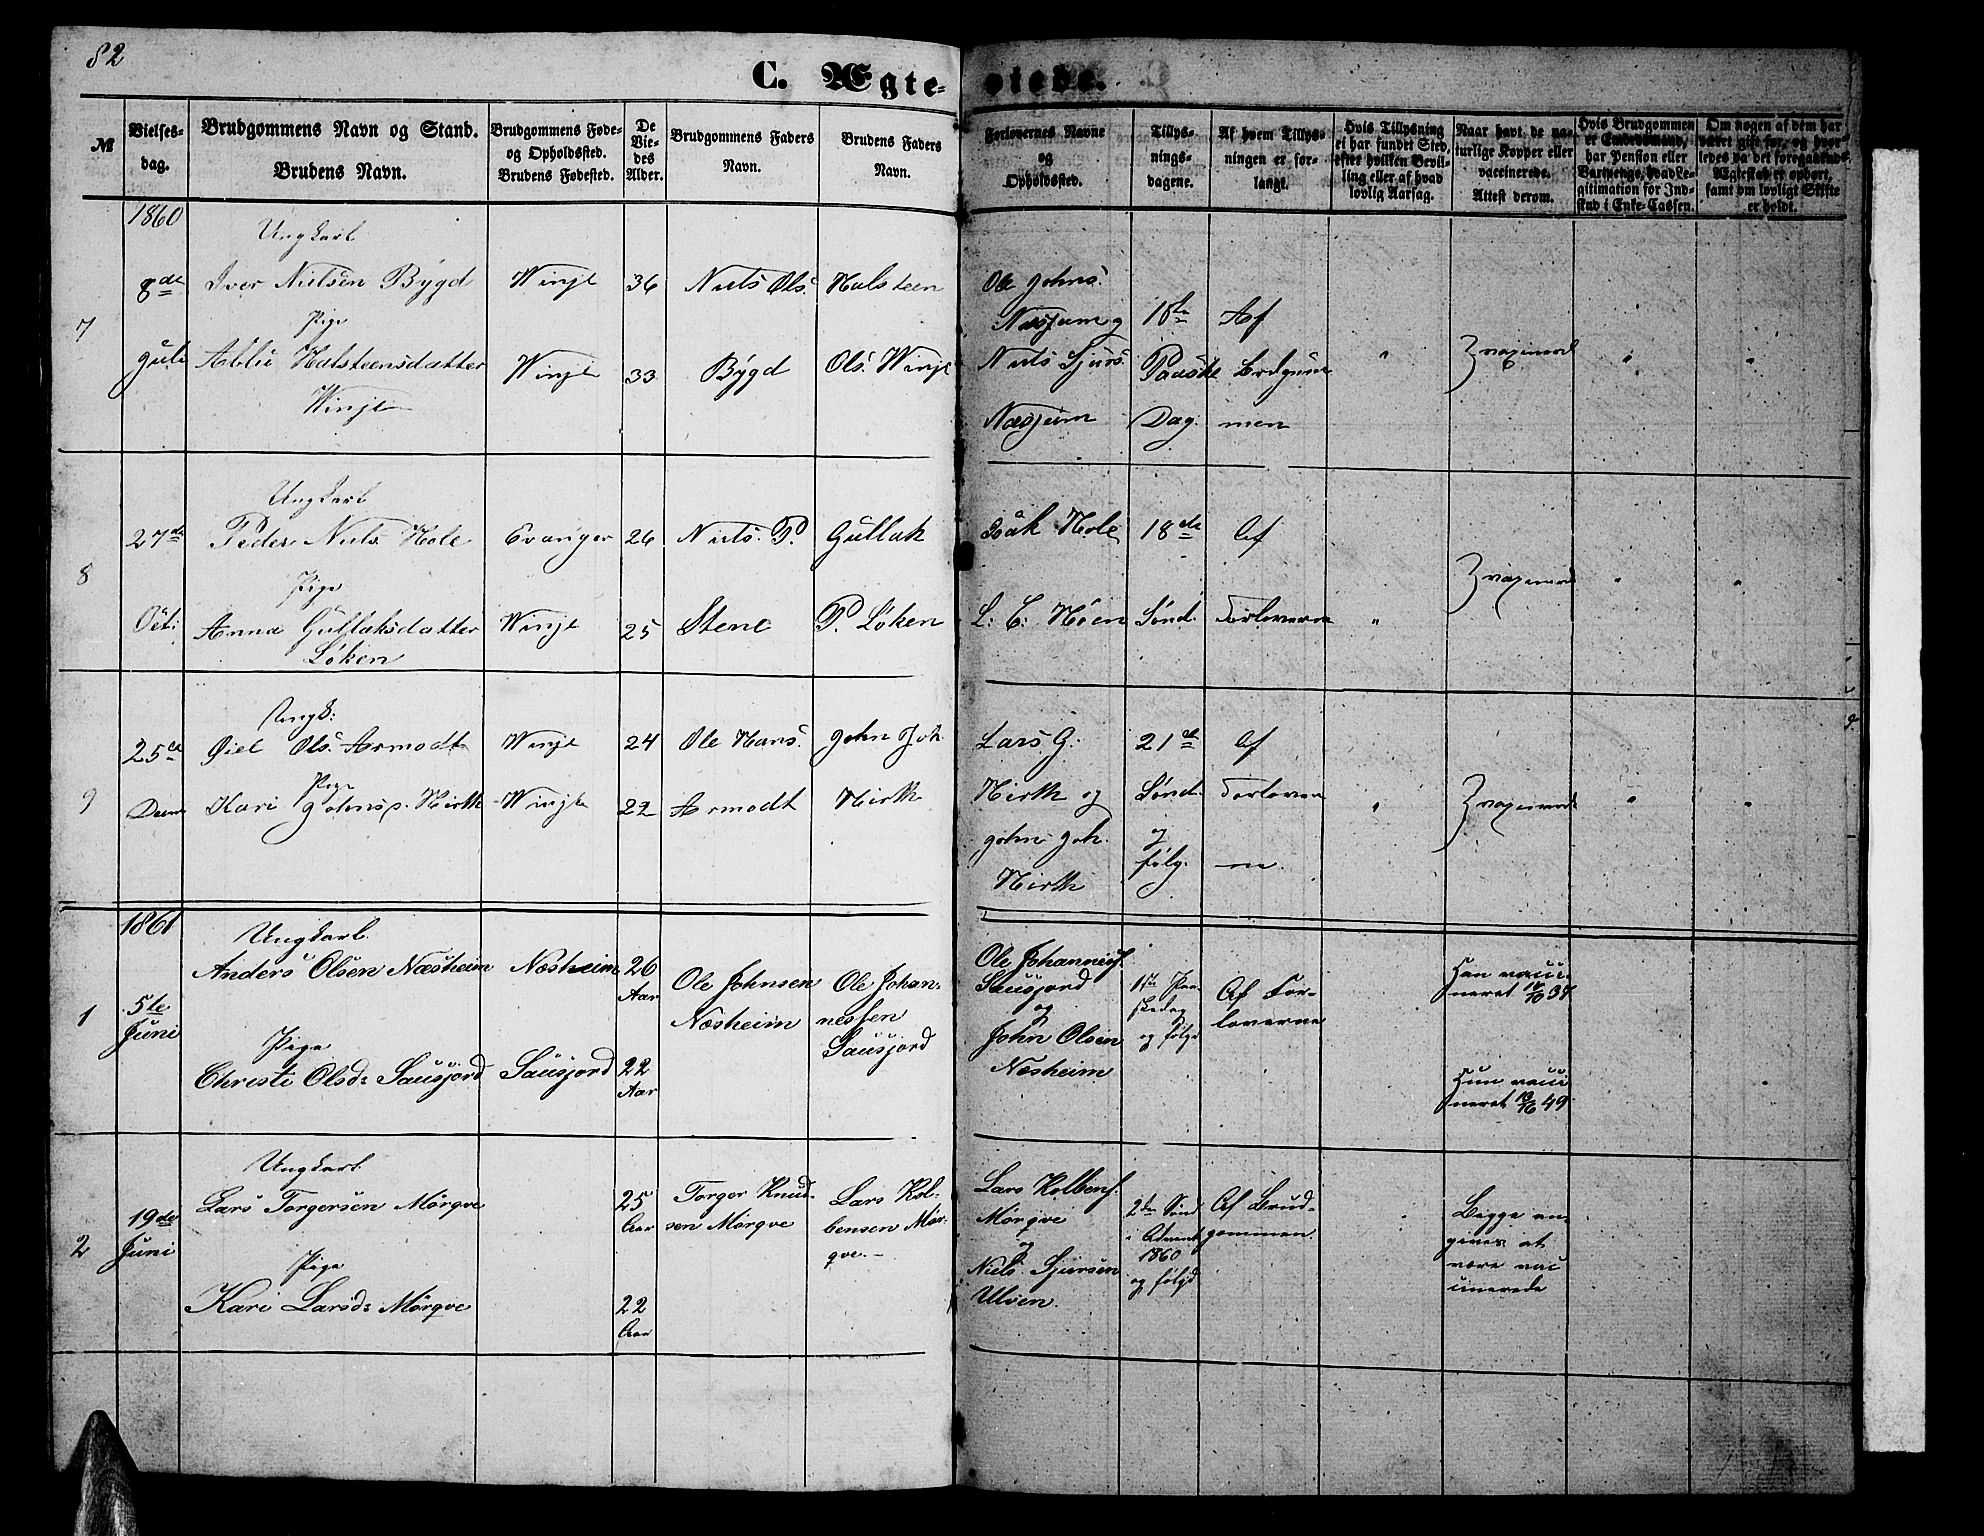 82
C. Ægte-
viede.
№
Vielses-
dag.
Brudgommens Navn og Stand.
Brudens Navn.
Brudgommens Føde-
og Opholdssted.
Brudens Fødested.
De
Vie-
des
Alder.
Brudgommens Faders
Navn.
Brudens Faders
Navn.
Forlovernes Navne
og
Opholdssted.
Tillys-
nings-
dagene.
Af hvem Tillys-
ningen er for-
langt.
Hvis Tillysning
ei har fundet Sted,
efter hvilken Bevil-
ling eller af hvad
lovlig Aarsag.
Naar havt de na-
turlige Kopper eller
vaccinerede.
Attest derom.
Hvis Brudgommen
er Embedsmand,
har Pension eller
Vartpenge, hvad Le-
gitimation for Ind-
skud i Enke-Cassen.
Om nogen af dem har
været gift før, og hvor-
ledes da det foregaaende
Ægteskab er ophørt,
samt om lovligt Skifte
er holdt.
1860
7
8de
Juli
Ungkarl
Iver Nielsen Bygd
Pige
Halsteensdatter
Winje
Winje
Winje
36
33
Niels Ols.
Bygd
Halsteen
Ols. Winje
Ole Johns.
Niels Sjurs.
Næsjum
18de
Paaske
Dag.
Af
men
"
"
"
8
27de
Oct:
Ungkarl
Peder Niels. Hole
Pige
Anna Gullaksdatter
Løken
Evanger
Winje
26
25
Niels. P.
Stene
Gullak
P. Løken
Isak Hole
18de
Sønd.
Af
Forloverne
"
"
"
9
25de
Decem
Ungk:
Ols. Armodt
Pige
Kari Johns. Hirth
Winje
Winje
24
22
Ole Hans.
Armodt
John Joh.
Hirth
Lars G:
Hirth og
John Joh.
Hirth
21de
Sønd.
og
følg.
Af
Forlover
ne
"
"
"
1861
1
5te
Juni
Ungkarl.
Anders Olsen Næsheim
Pige
Christi Olsd: Sausjord
Næsheim
Sausjord
26
Aar
22
Aar
Ole Johnsen
Næsheim
Ole Johan-
nessen
Sausjord
Ole Johannesf.
Sausjord
og
John Olsen
Næsheim
1ste Paa-
skedag
og følgd
Af For-
loverne
Han vacci-
neret
Hun vacci
neret 49
2
19de
Juni
Ungkarl.
Lars Torgersen Mørqve
Pige
Kari Larsd: Mørqve
25
Aar
22
Aar
Torger Knud-
sen Mørqve
Lars Kol-
bensen Mør-
qve.
Lars Kolbens.
Mørqve
og
Niels Sjursen
Ulven.
2den Sønd
i Advent
1860
og følgd
Af Brud-
gommen.
Begge an-
gives at
være vac
cinerede